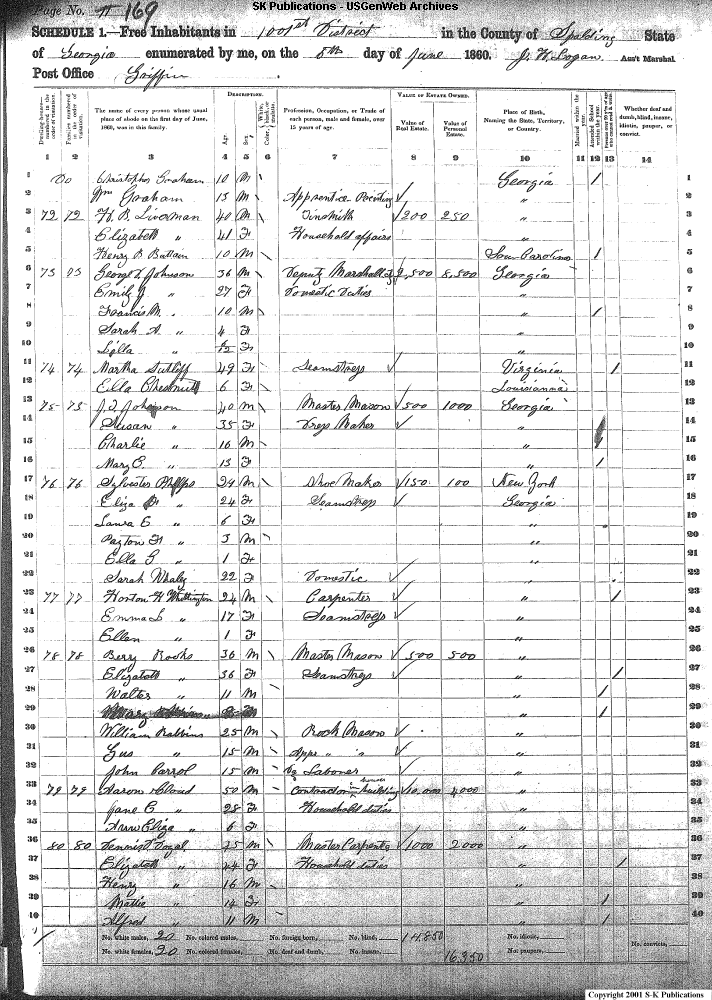 SK Publications - USGenWeb Archives
Page No. 169
SCHEDULE 1.—Free Inhabitants in 1001st District in the County of Spalding State
of Georgia enumerated by me, on the 8th day of June 1860. J. H. Logan Ass't Marshal.
Post Office Griffin
Dwelling-houses—numbered in the order of visitation.
Families numbered in the order of visitation.
The name of every person whose usual place of abode on the first day of June, 1860, was in this family.
DESCRIPTION.
Age.
Sex.
Color, White, black, or mulatto.
Profession, Occupation, or Trade of each person, male and female, over 15 years of age.
VALUE OF ESTATE OWNED.
Value of Real Estate.
Value of Personal Estate.
Place of Birth, Naming the State, Territory, or Country.
Married within the year.
Attended School within the year.
Persons over 20 y'rs of age who cannot read & write.
Whether deaf and dumb, blind, insane, idiotic, pauper, or convict.
1 2 3 4 5 6 7 8 9 10 11 12 13 14
1 Christopher Graham 10 M Georgia / 1
2 Wm Graham 15 M Apprentice Printing " 2
3 72 72 40 M Tinsmith 200 250 " 3
4 Elizabeth " 41 F Household affairs " 4
5 Henry B 10 M / 5
6 73 George L Johnson 36 M Deputy Marshall 8,500 Georgia 6
7 Emily J " 27 F Domestic Duties " 7
8 Francis M. 10 M " / 8
9 Sarah A. " 4 F " 9
10 Lilla " F " 10
11 74 74 Martha Sutliff 49 F Seamstress Virginia / 11
12 Ella Chestnutt 6 F Louisianna 12
13 75 75 J. J. Johnson 40 M Master Mason 500 1000 Georgia 13
14 Susan " 35 F Dress Maker " 14
15 Charlie " 16 M " / 15
16 Mary E. " 13 F " / 16
17 76 76 Sylvester Phelps 29 M Shoe Maker 150 100 New York 17
18 Eliza " 24 F Seamstress Georgia 18
19 Laura E " 6 F " 19
20 Payton " 3 M " 20
21 Ella G " 1 F " 21
22 Sarah Whaley 22 F Domestic " 22
23 77 77 Horton H Whittington 24 M Carpenter " / 23
24 Emma L " 17 F Seamstress " 24
25 Ellen " 1 F " 25
26 78 78 Berry Rooks 36 M Master Mason 500 500 " 26
27 Elizabeth " 36 F Seamstress " / 27
28 Walter " 11 M " / 28
29 " / 29
30 William Rabbins 25 M Rock Mason " 30
31 Gus " 15 M Appr " " " 31
32 John Carrol 15 M Laborer " 32
33 79 79 Aaron Cloud 50 M Contractor building 10,000 4000 " 33
34 Jane E " 28 F Household duties " 34
35 Ann Eliza " 6 F " 35
36 80 80 M Master Carpenter 1000 2000 " 36
37 Elizabeth " 44 F Household duties " / 37
38 Henry " 16 M " 38
39 Mattie " 14 F " / 39
40 Alfred " 11 M " / 40
No. white males, 20 No. colored males, No. foreign born, No. blind, 14,850 No. idiotic, No. convicts,
No. white females, 20 No. colored females, No. deaf and dumb, No. insane, 16,350 No. paupers,
Copyright 2001 S-K Publications